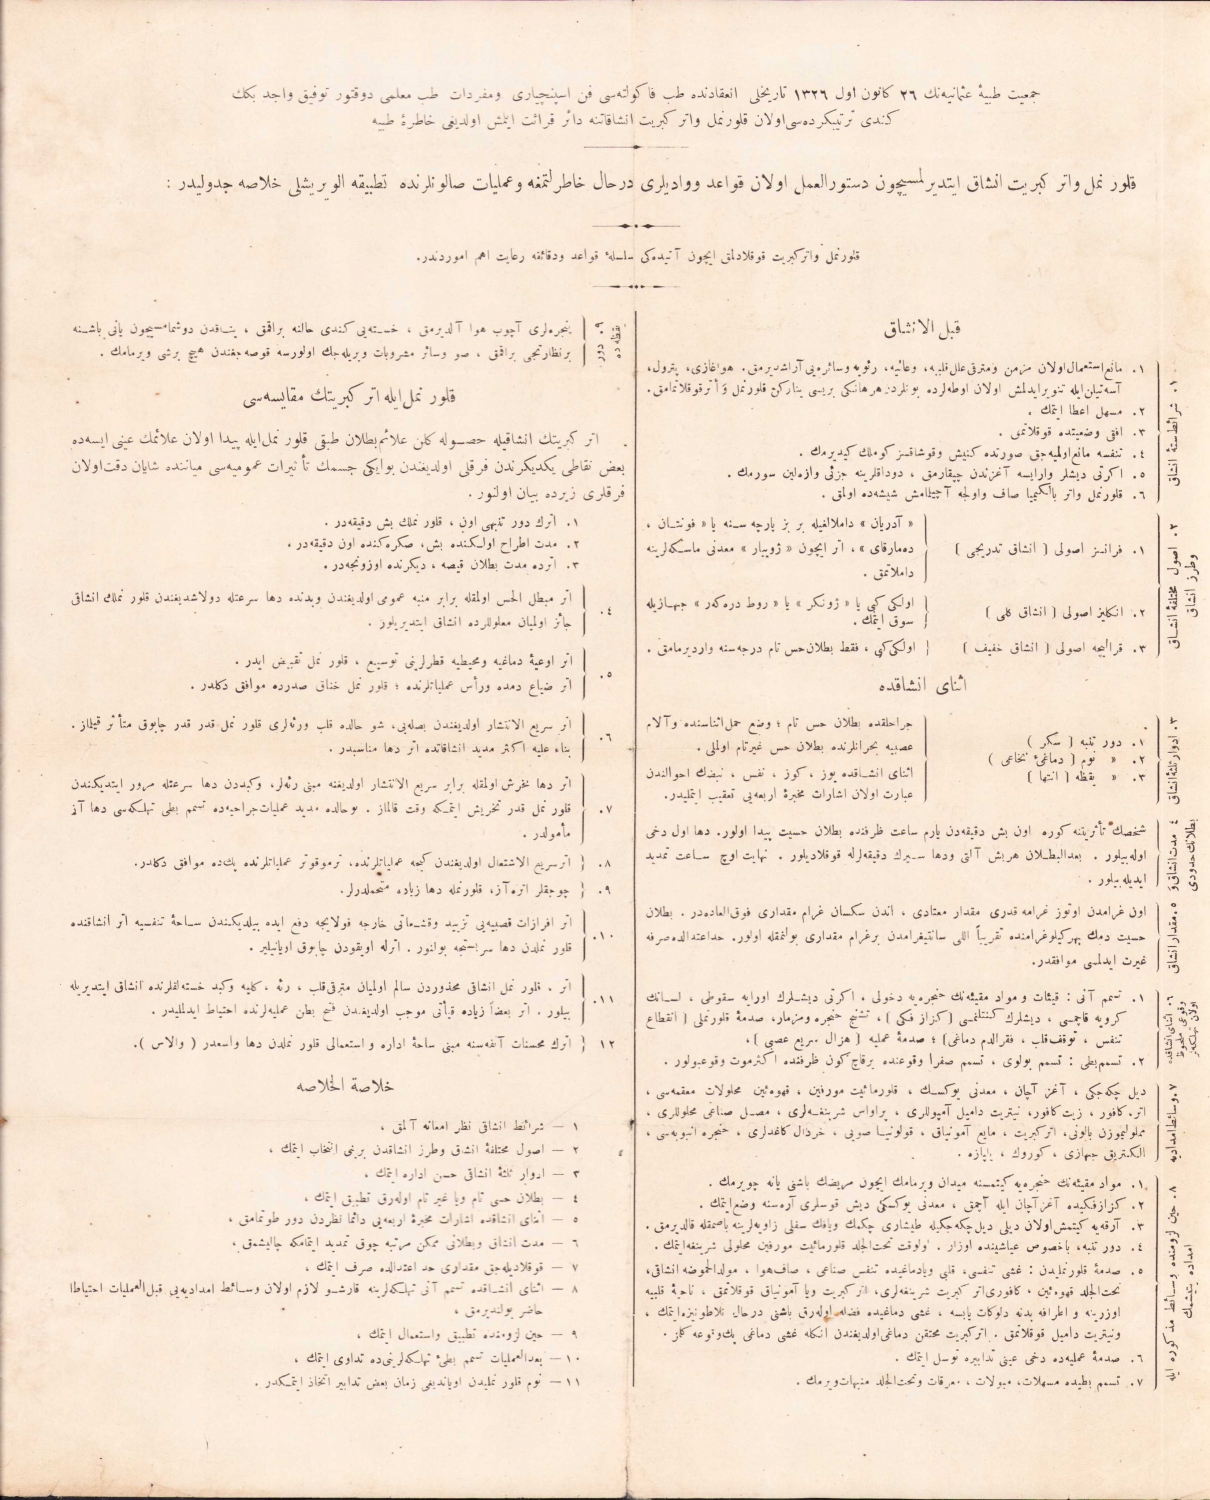 جمعیت طبیهٔ عثمانیه‌نك ٢٦ كانون اول ١٣٢٦ تاریخلی انعقادنده طب فاكولته‌سی فن اسپنچیاری ومفردات طب معلمی دوقتور توفیق واجد بكك
كندی ترتیبكرده‌سی اولان قلورنمل واتر كبریت انشاقاتنه دائر قرائت ایتمش اولدیغی خاطرهٔ طبیه
قلور نمل واتر كبریت انشاق ایتدیرلمسیچون دستورالعمل اولان قواعد ووادیلری درحال خاطرلتمغه وعملیات صالونلرنده تطبیقه الویریشلی خلاصه جدولیدر :
قلورنمل واتركبریت قوقلادلمق ایچون آتیده‌كی سلسلهٔ قواعد ودقائقه رعایت اهم اموردندر.
قبل الانشاق
١. شرائط ستهٔ انشاق
١. مانع استعمال اولان مزمن ومترقی علل قلبیه، وعائیه، رئویه وسائره‌یی آراشدیرمق. هواغازی، پترول،
آسه‌تیلن ایله تنویر ایدلمش اولان اوطه‌لرده بونلردن هرهانكی بریسی ینار‌كن قلورنمل و أترقوقلاتمامق.
٢. مسهل اعطا ایتمك .
٣. افقی وضعیتده قوقلاتمق .
٤. تنفسه مانع اولمیه‌جق صورتده كنیش وقوشاقسز كوملك كیدیرمك .
٥. اكرتی دیشلر وارایسه آغزندن چیقارمق ، دوداقلرینه جزئی وازه‌لین سورمك .
٦. قلورنمل واتر بالكیمیا صاف واولجه آچیلمامش شیشه‌ده اولمق .
٢. اصول مختلفهٔ انشاق وطرز انشاق
١. فرانسز اصولی ( انشاق تدریجی )
« آدریان » داملالغیله بر بز پارچه سنه یا « فونتان ،
ده‌مارقای » ، اتر ایچون « ژوییار » معدنی ماسكه‌لرینه
داملاتمق .
٢. انكلیز اصولی ( انشاق كلی )
اولكی كبی یا « ژونكر » یا « روط دره‌كەر » جهازیله
سوق ایتمك .
٣. قرالیجه اصولی ( انشاق خفیف )
اولكی كبی ، فقط بطلان حس تام درجه‌سنه واردیرمامق .
اثنای انشاقده
٣. ادوار ثلثهٔ انشاق
١. دور تنبه ( سكر )
٢. « نوم ( دماغی‌ٔ نخاعی )
٣. « یقظه ( انتها )
جراحلقده بطلان حس تام ؛ وضع حمل اثناسنده وآلام
عصبیه بحرانلرنده بطلان حس غیرتام اولملی .
اثنای انشاقده یوز ، كوز ، نفس ، نبضك احوالندن
عبارت اولان اشارات مخبرهٔ اربعه‌یی تعقیب ایتملیدر.
٤ مدت انشاق و بطلانك حدودی
شخصك تأثریتنه كوره اون بش دقیقه‌دن یارم ساعت ظرفنده بطلان حسیت پیدا اولور. دها اول دخی
اوله‌بیلور . بعدالبطلان هر بش آلتی ودها سیرك دقیقه‌لرله قوقلادیلور . نهایت اوچ ساعت تمدید
ایدیله بیلور .
٥. مقدار انشاق
اون غرامدن اوتوز غرامه قدری مقدار معتادی ، اندن سكسان غرام مقداری فوق العاده‌در . بطلان
حسیت دمك بهركیلوغرامنده تقریباً اللی سانتیغرامدن برغرام مقداری بولنمقله اولور. حداعتدالده صرفه
غیرت ایدلمسی موافقدر.
٦. اثنای انشاقده وقوعی ملحوظ اولان تهلكه‌لر
١. تسمم آنی : قیئات و مواد مقیئه‌نك حنجره‌یه دخولی . اكرتی دیشلرك اورایه سقوطی ، لسانك
كرویه قاچمسی ، دیشلرك كینتلنمسی ( كزاز فكی ) ، تشنج حنجره ومزمار، صدمهٔ قلورنملی ( انقطاع
تنفس ، توقف قلب ، فقرالدم دماغی ) ؛ صدمهٔ عملیه ( هزال سریع عصبی ) ،
٢. تسمم بطی : تسمم بولوی ، تسمم صفرا وقوعنده برقاچ كون ظرفنده اكثر موت وقوعبولور .
٧. وسائط امدادیه
دیل چكه‌جكی ، آغز آچان ، معدنی یوكسك ، قلورمائیت مورفین ، قهوه‌ئین محلولات معقمه‌سی ،
اتر، كافور ، زیت كافور، نیتریت دامیل آمپوللری ، پراواس شرینغه‌لری ، مصل صناعی محلوللری ،
مملو مولدالحموضه بالونی، اتركبریت ، مایع آمونیاق ، قولونیا صویی ، خردال كاغدلری ، حنجره انبوبه‌سی ،
الكتریق جهازی ، كوروك ، یلپازه .
٨. حین لزومنده وسائط مذكوره ایله امداده یتیشمك
١. مواد مقیئه‌نك حنجره‌یه كیتمسنه میدان ویرمامك ایچون مریضك باشنی یانه چویرمك .
٢. كزاز فكیده آغزآچان ایله آچمق ، معدنی یوكسكی دیش قوسلری آره‌سنه وضع ایتمك .
٣. آرقه‌یه كیتمش اولان دیلی دیل چكه‌جكیله طیشاری چكمك ویافك سفلی زاویه‌لرینه باصمقله قالدیرمق .
٤. دور تنبه، باخصوص عیاشینده اوزار . اولوقت تحت الجلد قلورمائیت مورفین محلولی شرینغه ایتمك .
٥. صدمهٔ قلورنملیدن : غشی تنفسی، قلبی ویادماغیده تنفس صناعی ، صاف هوا ، مولدالحموضه انشاقی،
تحت الجلد قهوه‌ئین . كافوری اتر كبریت شرینغه‌لری، اتركبریت ویا آمونیاق قوقلاتمق ، ناحیهٔ قلبیه
اوزرینه و اعرافه بدنه دلوكات یابسه ، غشی دماغیده فضله اوله‌رق باشنی درحال نلاطونیزه ایتمك ،
ونیتریت دامیل قوقلاتمق . اتركبریت محتقن دماغی اولدیغندن انكله غشی دماغی پك‌وقوعه كلمز .
٦. صدمهٔ عملیه‌ده دخی عینی تدابیره توسل ایتمك .
٧. تسمم بطیده مسهلات، مبولات ، معرقات وتحت الجلد منبهات ویرمك .
٩. دور یقظه ده
پنجره‌لری آچوب هوا آلدیرمق ، خسته‌یی كندی حالنه براقمق ، یتاقدن دوشمامسیچون یانی باشنه
برنظارتجی براقمق ، صو وسائر مشروبات ویریله‌جك اولورسه قوصه‌جغندن هیچ برشی ویرمامك .
قلور نمل ایله اتر كبریتك مقایسه‌سی
اتر كبریتك انشاقیله حصوله كلن علائم بطلان طبقی قلور نمل ایله پیدا اولان علائمك عینی ایسه‌ده
بعض نقاطی یكدیكرندن فرقلی اولدیغندن بوایكی جسمك تأثیرات عمومیه‌سی میاننده شایان دقت اولان
فرقلری زیرده بیان اولنور .
١. اترك دور تنبهی اون ، قلور نملك بش دقیقه‌در .
٢. مدت اطراح اولكنده بش، صكره‌كنده اون دقیقه‌در .
٣. اترده مدت بطلان قیصه ، دیكرنده اوزونجه‌در.
٤. اتر مبطل الحس اولمقله برابر منبه عمومی اولدیغندن وبدنده دها سرعتله دولاشدیغندن قلور نملك انشاقی
جائز اولمیان معلوللرده انشاق ایتدیریلور.
٥. اتر اوعیهٔ دماغیه ومحیطیه قطرلرینی توسیع ، قلور نمل تقبیض ایدر .
اتر ضیاع دمده ورأس عملیاتلرنده ؛ قلور نمل خناق صدرده موافق دكلدر.
٦. اتر سریع الانتشار اولدیغندن بصله‌یی، شو حالده قلب ورئه‌لری قلور نمل قدر چابوق متأثر قیلماز .
بناء علیه اكثر مدید انشاقاتده اتر دها مناسبدر.
٧. اتر دها مخرش اولمقله برابر سریع الانتشار اولدیغنه مبنی رئه‌لر، وكبددن دها سرعتله مرور ایتدیكندن
قلور نمل قدر تخریش ایتمكه وقت قالماز . بوحالده مدید عملیات جراحیه‌ده تسمم بطی تهلكه‌سی دها آز
مأمولدر .
٨. اترسریع الاشتعال اولدیغندن كیجه عملیاتلرنده، ترموقوتر عملیاتلرنده پك‌ده موافق دكلدر.
٩. چوجقلر اتره آز، قلورنمله دها زیاده متحملدرلر.
١٠. اتر افرازات قصبیه‌یی تزیید وقشعاتی خارجه قولایجه دفع ایده بیلدیكندن ساحهٔ تنفسیه اتر انشاقنده
قلور نملدن دها سربستجه بولنور . اترله اویقودن چابوق اویانیلیر .
١١. اتر ، قلور نمل انشاقی محذوردن سالم اولمیان مترقی قلب ، رئه ، كلیه وكبد خسته‌لقلرنده انشاق ایتدیریله
بیلور . اتر بعضاً زیاده قیأنی موجب اولدیغندن فتح بطن عملیه‌لرنده احتیاط ایدلملیدر .
١٢ اترك محسنات آنفه‌سنه مبنی ساحهٔ اداره و استعمالی قلور نملدن دها واسعدر ( والاس ).
خلاصة الخلاصه
١ — شرائط انشاقی نظر امعانه آلمق ،
٢ — اصول مختلفهٔ انشاق وطرز انشاقدن برینی انتخاب ایتمك ،
٣ — ادوار ثلثهٔ انشاقی حسن اداره ایتمك ،
٤ — بطلان حسی تام ویا غیر تام اوله‌رق تطبیق ایتمك ،
٥ — اثنای انشاقده اشارات مخبرهٔ اربعه‌یی دائما نظردن دور طوتمامق ،
٦ — مدت انشاق وبطلانی ممكن مرتبه چوق تمدید ایتمامكه چالیشمق ،
٧ — قوقلادیله‌جق مقداری حد اعتدالده صرف ایتمك ،
٨ — اثنای انشاقده تسمم آنی تهلكه‌لرینه قارشو لازم اولان وسائط امدادیه‌یی قبل العملیات احتیاطا
حاضر بولندیرمق ،
٩ — حین لزومنده تطبیق واستعمال ایتمك ،
١٠— بعدالعملیات تسمم بطیٔ تهلكه‌لرینی‌ده تداوی ایتمك ،
١١— نوم قلور نملیدن اویاندیغی زمان بعض تدابیر اتخاذ ایتمكدر .